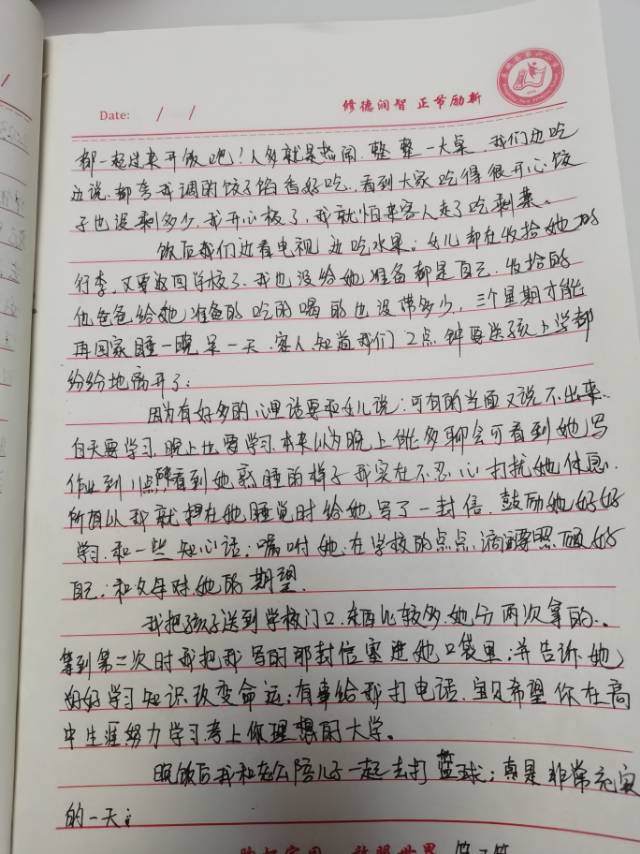 Date: / /
修德润智 正节励新
都一起过来开饭吧！人多就是热闹，整整一大桌，我们边吃
边说都夸我调的饺子馅香好吃，看到大家吃得很开心饺
子也没剩多少，我开心极了，我就怕来客人走了吃剩菜。
饭后我们边看电视边吃水果；女儿却在收拾她的
行李，又要返回学校了，我也没给她准备都是自己收拾的
他爸爸给她准备的吃的喝的也没带多少，三个星期才能
再回家睡一晚呆一天，客人知道我们2点钟要送孩上学都
纷纷地离开了；
因为有好多的心里话要和女儿说；可有的当面又说不出来，
白天要学习，晚上也要学习，本来以为晚上能多聊会可看到她写
作业到11点钟看到她熟睡的样子我实在不忍心打扰她休息，
所有以我就想在她睡觉时给她写了一封信，鼓励她好好
学习，和一些知心话；嘱咐她，在学校的点点滴滴要照顾好
自己；和父母对她的期望。
我把孩子送到学校门口，东西比较多，她分两次拿的，
等到第二次时我把我写的那封信塞进她口袋里；并告诉她
好好学习知识改变命运；有事给我打电话，宝贝希望你在高
中生涯努力学习考上你理想的大学。
晚饭后我和老公陪儿子一起去打篮球；真是非常充实
的一天；